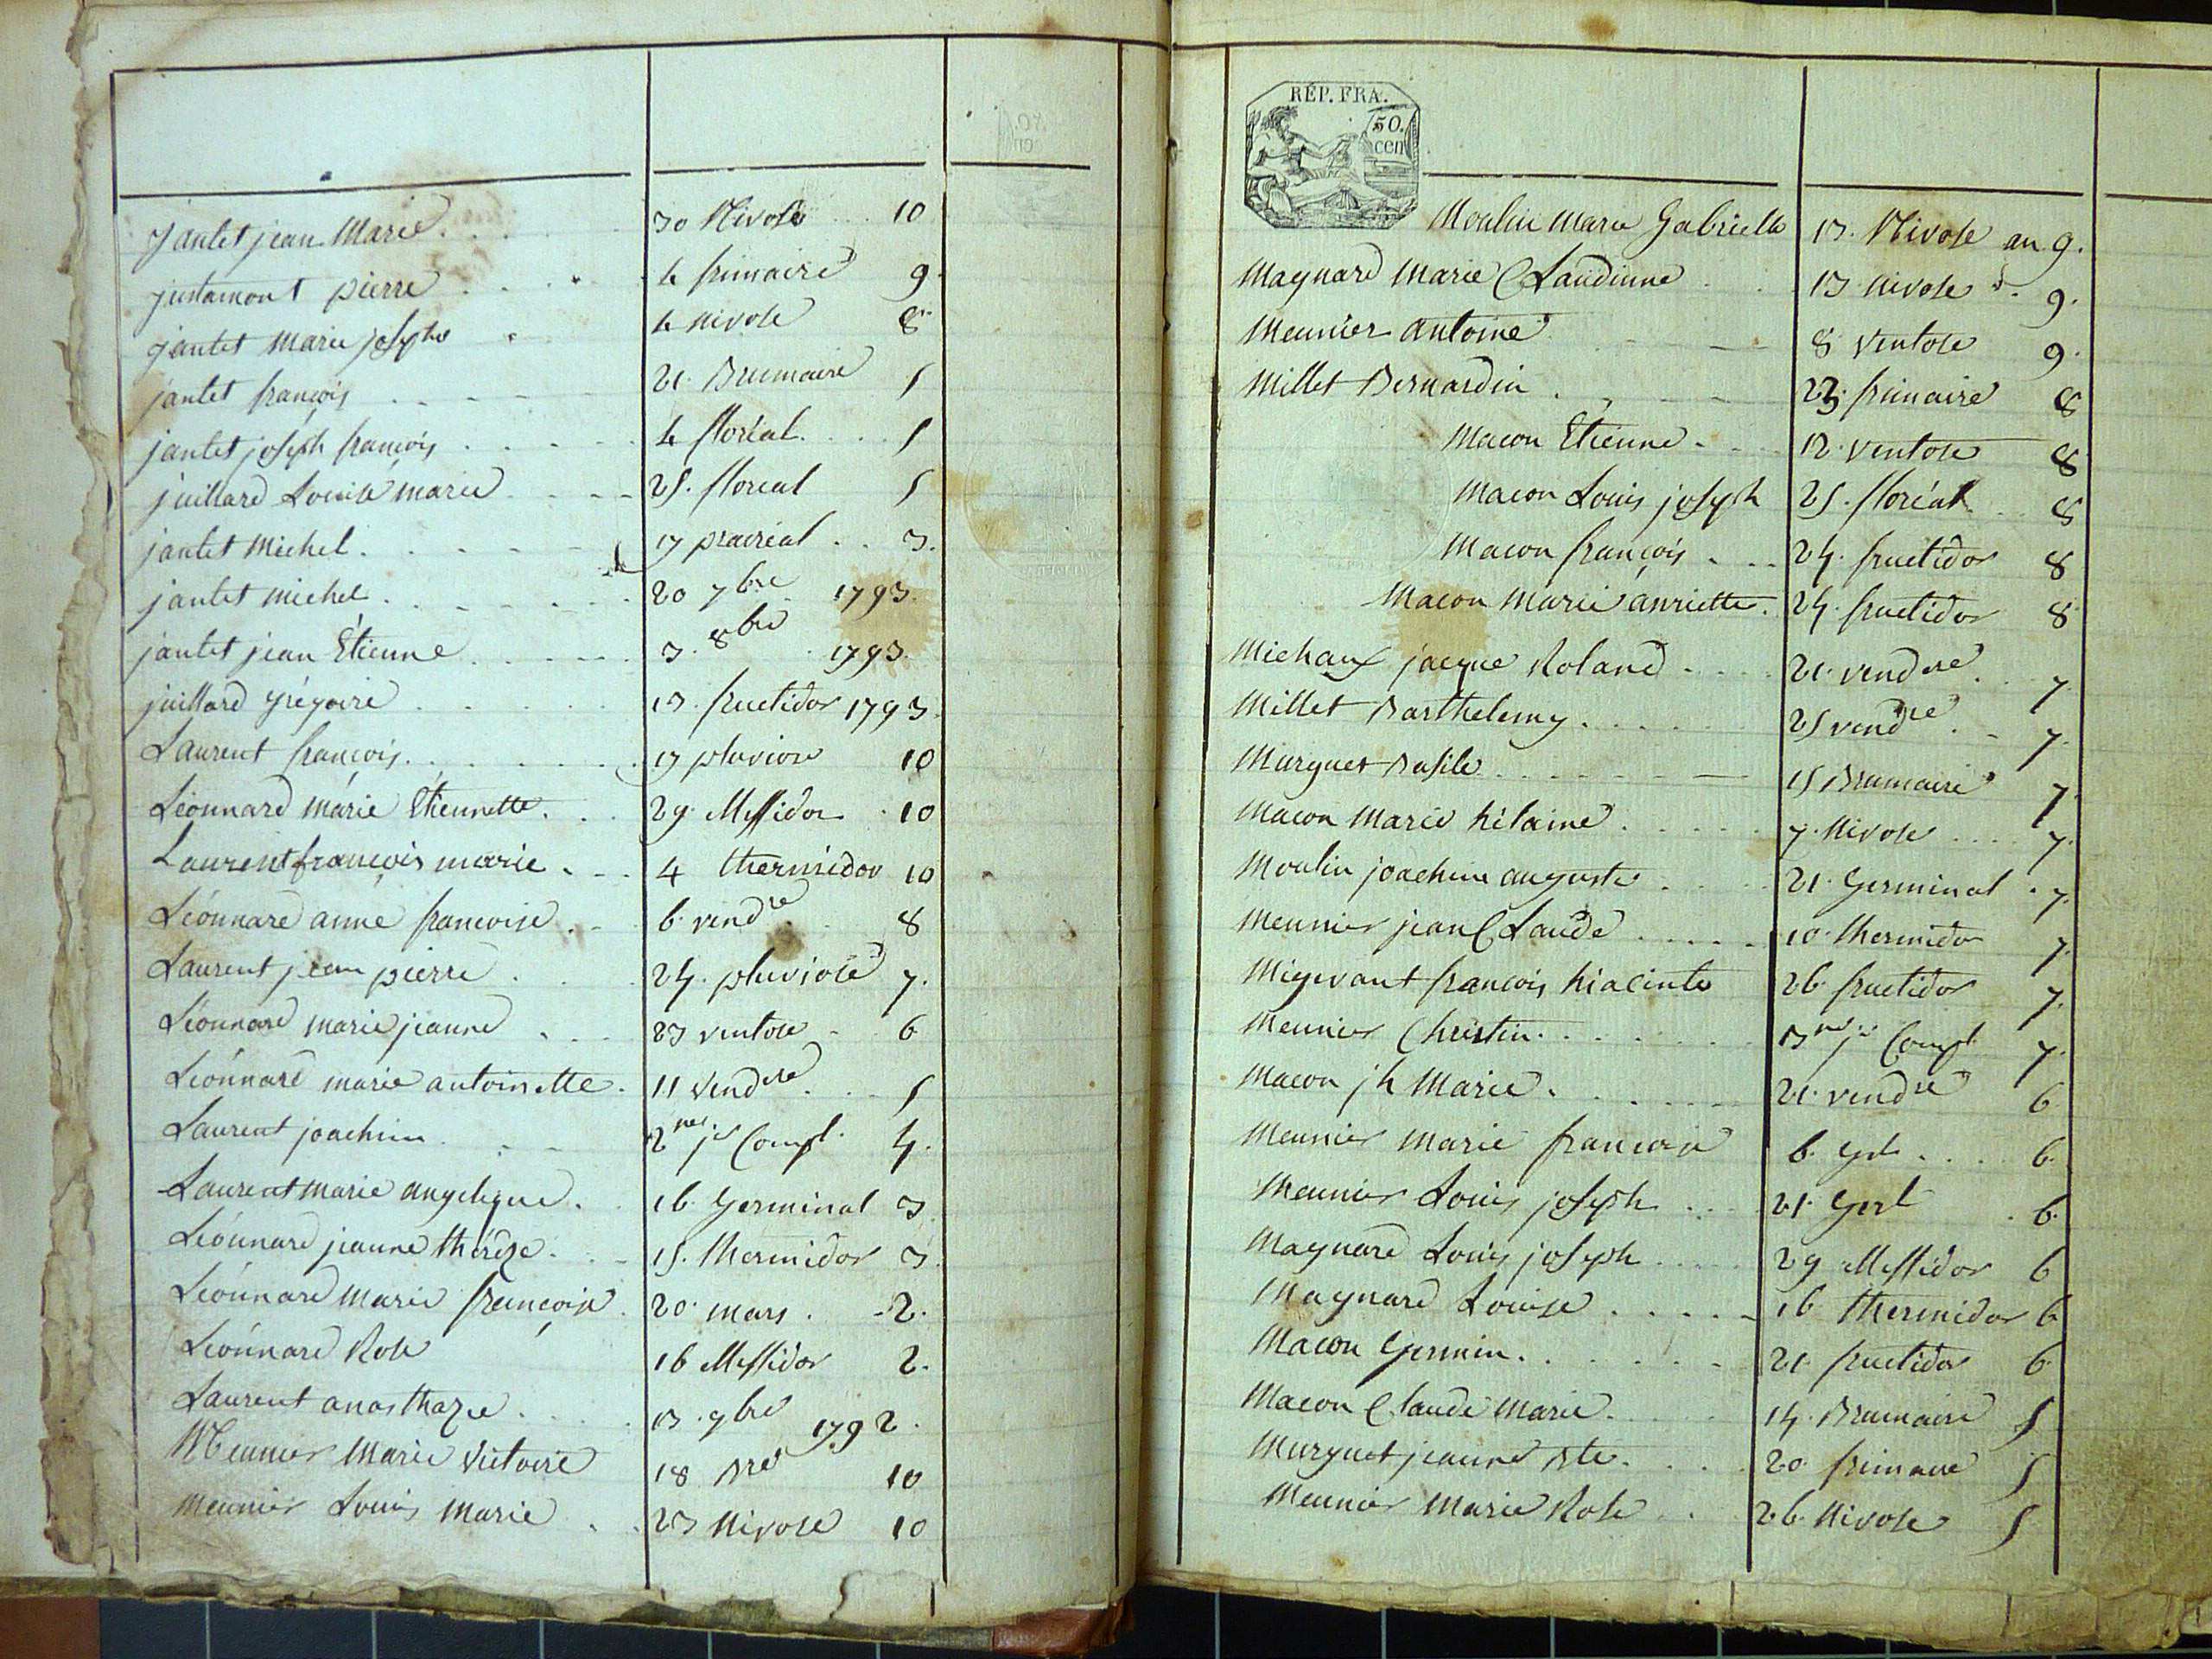 Jantet jean Marie 30 Nivose 10
justamont pierre 4 frimaire 9
jantet marie josephe 4 nivose 8
jantet françois 21 Brumaire 5
jantet joseph françois 4 floréal 5
juillard Louise marie 25 floreal 5
jantet Michel 17 prairéal 3
jantet michel 20 7bre 1793
jantet jean Étienne 3 8bre 1793
juillard grégoire 13 fructidor 1793
Laurent françois 17 pluviose 10
Léonnard marie Étiennette 29 Messidor 10
Laurent françois marie 4 thermidor 10
Léonnard anne françoise 6 vendre 8
Laurent jean pierre 24 pluviose 7
Léonnard marie jeanne 23 ventose 6
Léonnard marie antoinette 11 Vendre 5
Laurent joachim 2me jr Compl. 4
Laurent marie angelique 16 Germinal 3
Léonnard jeanne thérèze 15 thermidor 3
Léonnard marie françoise 20 mars 2
Léonnard Rose 16 Messidor 2
Laurent anasthazie 13 9bre 1792
Meunier Marie Victoire 18 Bre 10
Meunier Louis Marie 23 Nivose 10
RÉP. FRA.
50.
cen
Moulin Marie Gabrielle 13 Nivose an 9
Maynard Marie Claudinne 13 nivose d. 9
Meunier Antoine 8 Ventose 9
Millet Bernardin 23 frimaire 8
Macon Étienne 12 ventose 8
Macon Louis joseph 25 floréal 8
Macon françois 24 fructidor 8
Macon Marie anriette 24 fructidor 8
Michaux jacque Roland 21 vendre 7
Millet Barthelemy 25 vendre 7
Murguet Basile 15 Brumaire 7
Macon Marie hélaine 7 Nivose 7
Moulin joachim auguste 21 Germinal 7
Meunier jean Claude 10 thermidor 7
Migevant françois hiacinte 26 fructidor 7
Meunier Christin 3me jr Compl. 7
Macon jh Marie 21 vendre 6
Meunier Marie françoise 6 Grl 6
Meunier Louis joseph 21 Gerl 6
Maynard Louis joseph 29 Messidor 6
Maynard Louise 16 thermidor 6
Macon Germin 21 fructidor 6
Macon Claude Marie 14 Brumaire 5
Murguet jeanne Bte 20 frimaire 5
Meunier Marie Rose 26 Nivose 5